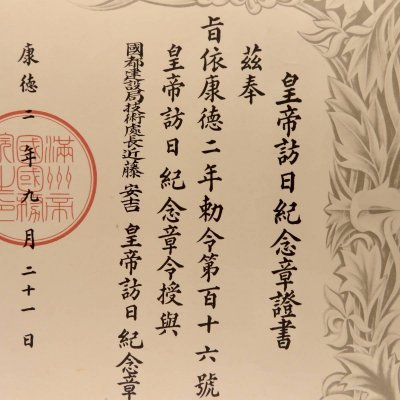 皇帝訪日紀念章證書
茲奉
旨依康德二年勅令第百十六號
皇帝訪日紀念章令授與
國都建設局技術處長近藤 安吉 皇帝訪日紀念章
康德二年九月二十一日
滿洲帝
國國務
院之印